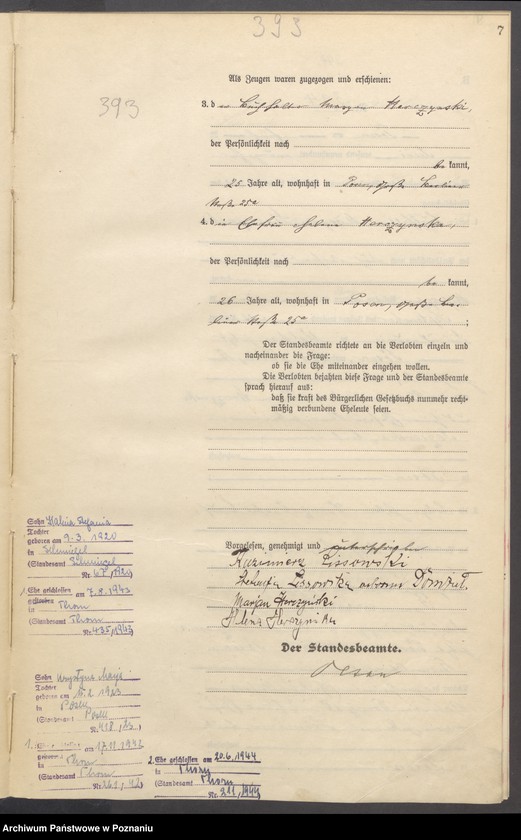 393
7
393
Als Zeugen waren zugezogen und erschienen:
3. d er Buchhalter Maryan Harczynski,
der Persönlichkeit nach
be kannt,
25 Jahre alt, wohnhaft in Posen, Große Berliner
Straße 25a
4. d ie Ehefrau Helene Harczynska,
der Persönlichkeit nach
be kannt,
26 Jahre alt, wohnhaft in Posen, Große Ber
liner Straße 25a ;
Der Standesbeamte richtete an die Verlobten einzeln und
nacheinander die Frage:
ob sie die Ehe miteinander eingehen wollen.
Die Verlobten bejahten diese Frage und der Standesbeamte
sprach hierauf aus:
daß sie kraft des Bürgerlichen Gesetzbuchs nunmehr recht-
mäßig verbundene Eheleute seien.
Vorgelesen, genehmigt und unterschrieben
Kazimierz Lissowski
Marjan Harczyński
Helena
Der Standesbeamte.
Sohn Halina Stefania
Tochter
geboren am 9.3.1920
in Schmiegel
(Standesamt Schmiegel
Nr. 67, 1920)
1. Ehe geschlossen am 7.8.1943
in Thorn
(Standesamt Thorn
Nr. 435, 1943)
Sohn
Tochter
geboren am
in Posen
(Standesamt Posen
Nr. 418
1.
am
in Thorn
(Standesamt Thorn
2. Ehe geschlossen am 20.6.1944
in Thorn
(Standesamt Thorn
Nr. 211, 1944)
Archiwum Państwowe w Poznaniu